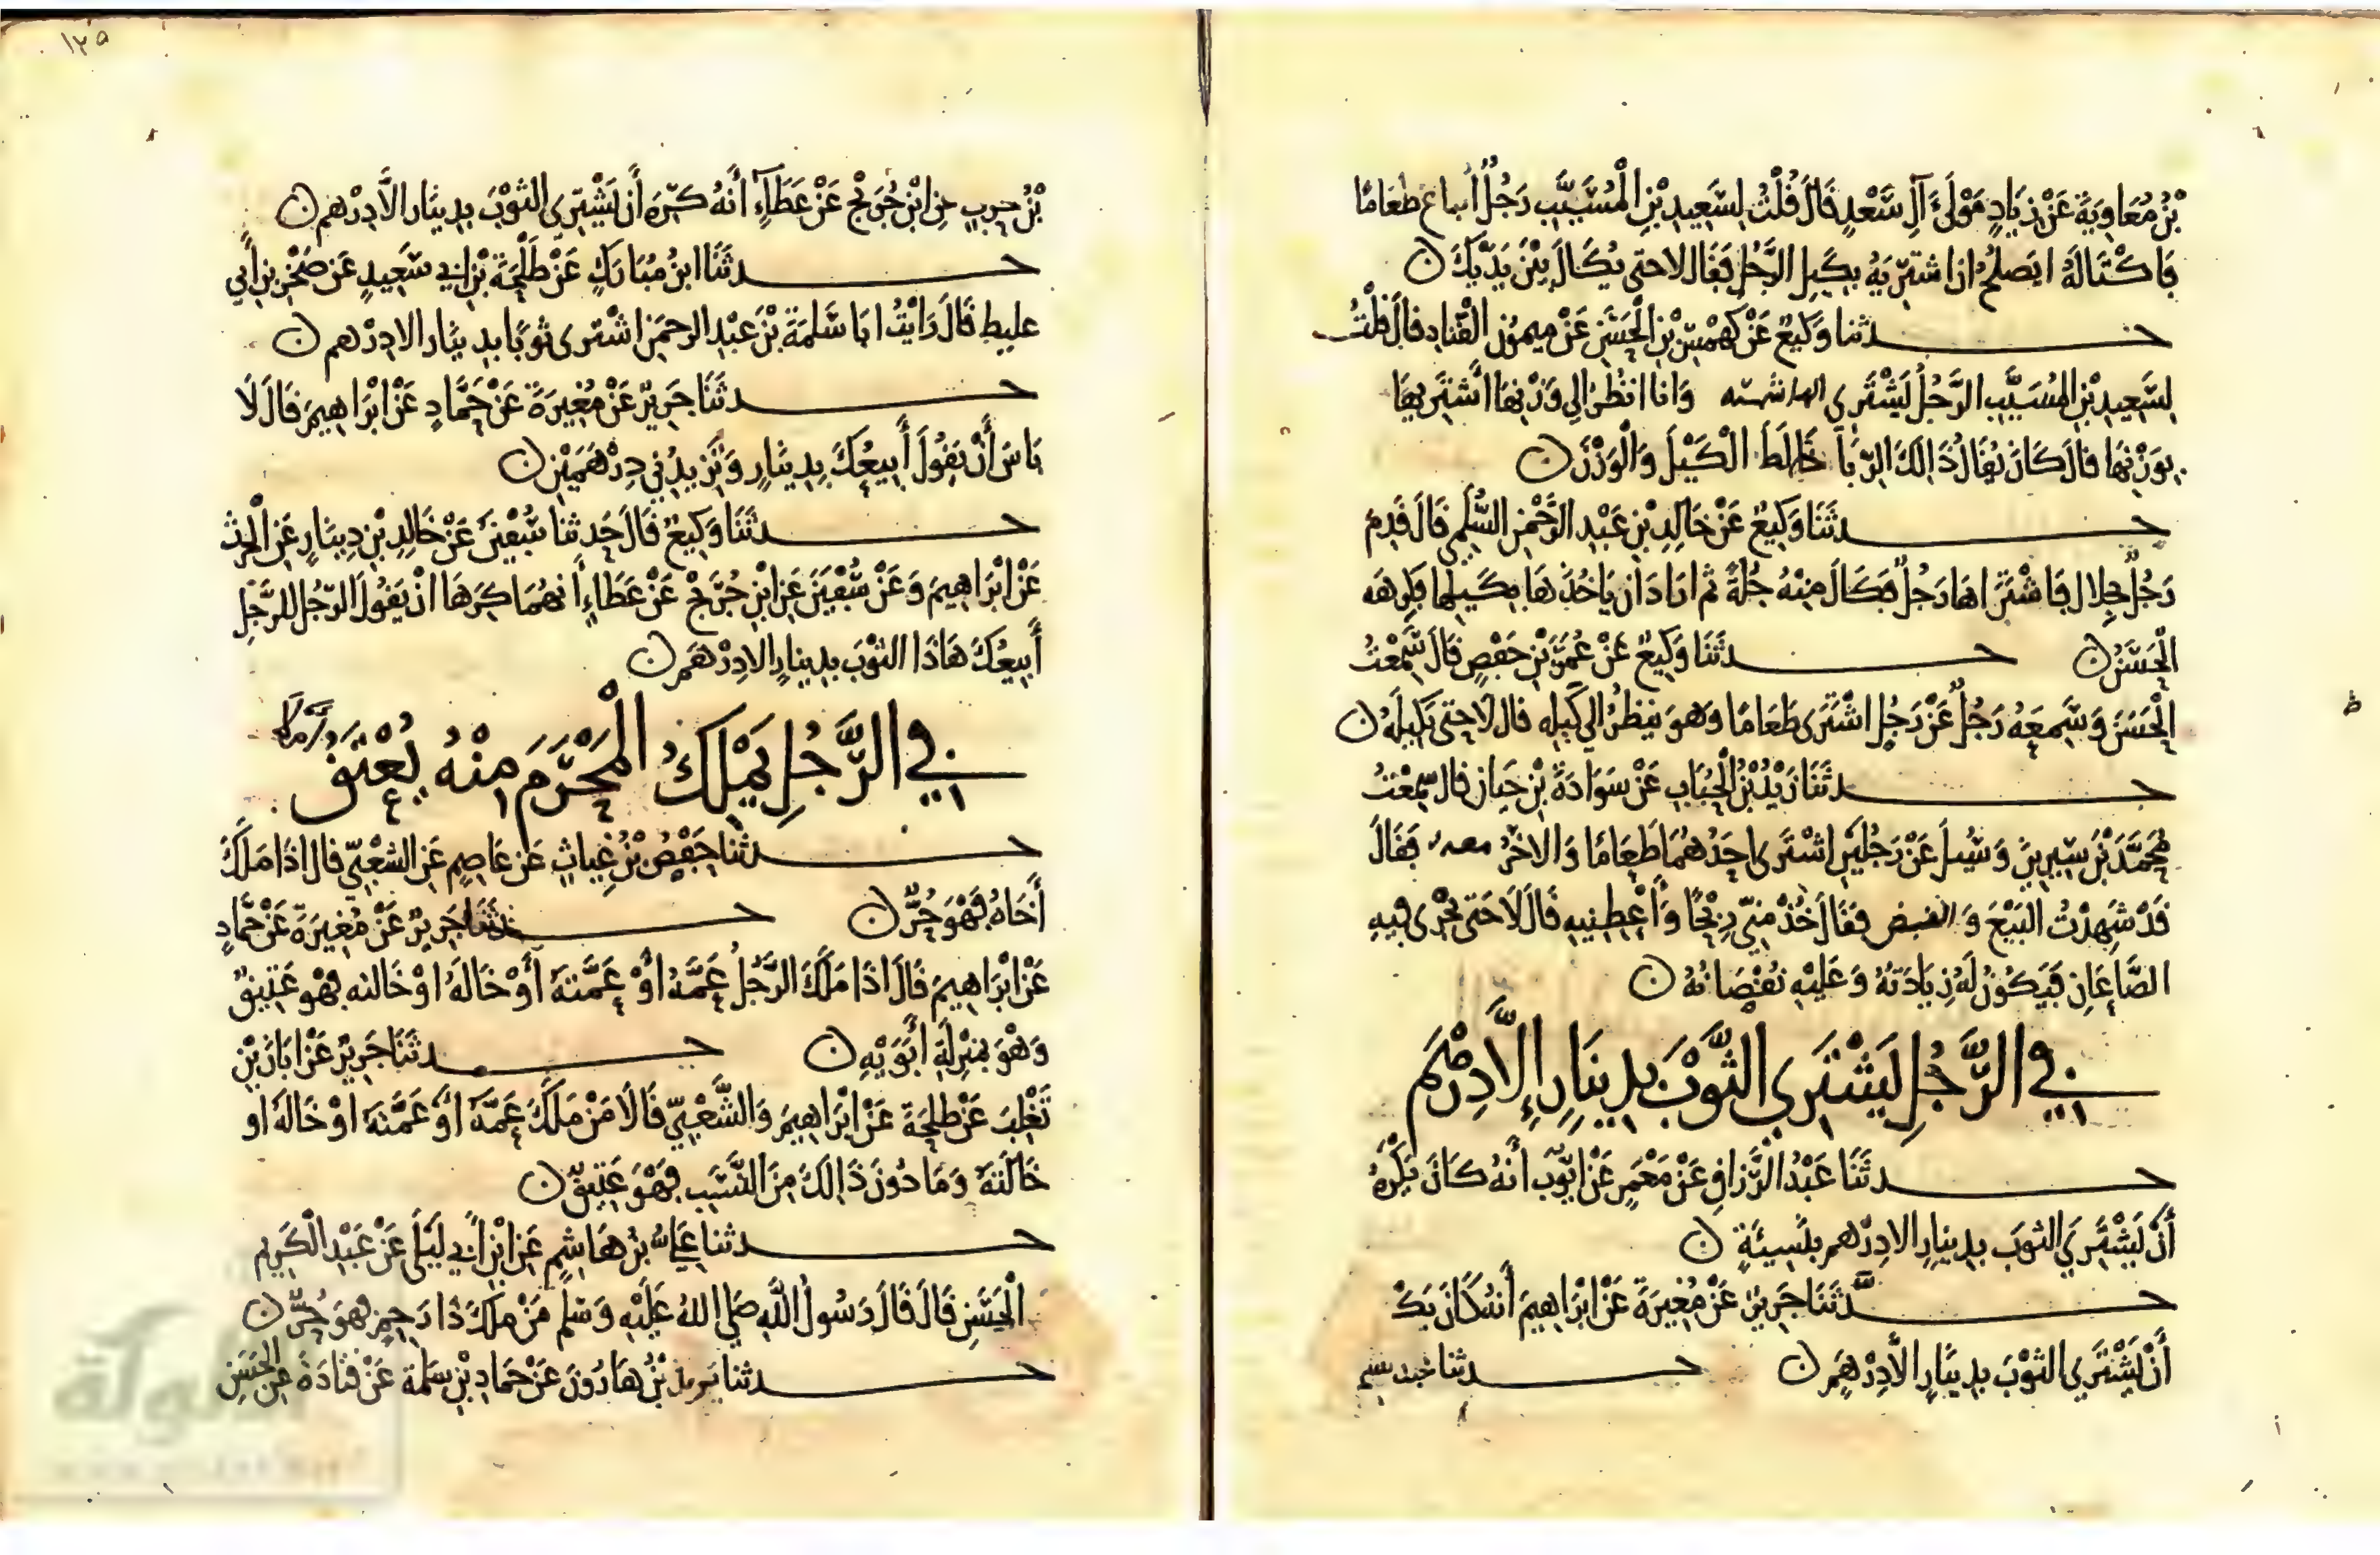 بْنُ مُعَاوِيَةَ عَنْ زِيَادٍ مَوْلَى آلِ سَعْدٍ قَالَ قُلْتُ لِسَعِيدِ بْنِ الْمُسَيَّبِ رَجُلٌ ابتاع طَعَامًا
فَاكْتَالَهُ ايَصلحُ ان اشتَرِيَهُ بِكَيلِ الرَّجُلِ فَقَال لا حتى يُكَالَ بَيْنَ يَدَيْكَ ن
حدثنا وَكِيعٌ عَنْ كَهْمَسِ بْنِ الْحَسَنِ عَنْ ميمُونِ القَنَّادِ قالَ قُلْتُ
لِسَعِيدِ بْنِ المُسَيَّبِ الرَّجُلُ يَشْتَرِي وَانا انظُرُ الى وَزْنِهَا أَشتَرِيهَا
بوَزْنِهَا قالَ كَانَ يُقَالُ ذَالِكَ الرِّبَا خَالَطَ الْكَيْلَ وَالْوَزْنَ ن
حدثَنَا وَكِيعٌ عَنْ خَالِدِ بْنِ عَبْدِ الرَّحْمَنِ السُّلَمِي قَالَ قَدِمَ
رَجُلٌ بِجِلال فَاشْتَرَاهَا رَجُلٌ فَكَالَ مِنْهُ جُلَّةً ثم ارَادَ ان يَاخُذَهَا بِكَيلِهَا فكرِهَه
الْحَسَنُ ن حدثَنَا وَكِيعٌ عَنْ عُمَرَ بْنِ حَفْصٍ قَالَ سَمِعْتُ
الْحَسَنَ وَسَمِعَهُ رَجُلٌ عَنْ رَجُلٍ اشْتَرَى طَعَامًا وَهوَ ينظرُ الى كَيلِهِ قال لا حتى يَكِيلَهُ ن
حدثَنَا زَيْدُ بْنُ الْحُبَابِ عَنْ سَوَادَةَ بْنِ حَيان قال سَمِعْتُ
مُحَمَّدَ بْنَ سِيرِينَ وَسُيلَ عَنْ رَجُلَيْنِ اشْتَرَى احَدُهُمَا طَعَامًا وَالاخَرُ معه فَقَالَ
قَدْ شَهِدْتُ البَيْعَ وَالقبض فقَالَ خُذْ مِنِّي رِبْحًا وَأَعْطِنِيهِ قَالَ لَا حَتى يَجْرِىَ فيهِ
الصَّاعَانِ فَيَكُونُ لَهُ زِيَادَتُهُ وَعَلَيْهِ نُقْصَانُهُ ن
في الرَّجُلِ يَشْتَرِي الثَّوْبَ بِدِينَارٍ إِلَّا دِرْهَم
حدثَنَا عَبْدُ الرَّزاقِ عَنْ مَعْمَرٍ عَنْ ايُّوبَ أَنَّهُ كَانَ يَكْرَهُ
أَنْ يَشْتَرِيَ الثوبَ بِدِينَارٍ الا دِرْهم بِنَسِيئَةٍ ن
حدثَنَا جَرِيرٌ عَنْ مُغِيرَةَ عَنْ ابْرَاهِيمَ أنه كَانَ يَكْ
أَنْ يَشْتَرِيَ الثوْبَ بِدِينَارٍ الَّا دِرْهَمٍ ن حدثنا
١٢٥
بْنُ حرب عن ابْنِ جُرَيْجٍ عَنْ عَطَاءٍ أَنَّهُ كَرِهَ أَن يَشْتَرِي الثوْبَ بِدِينَارٍ الَّا دِرْهم ن
حدثَنَا ابنُ مُبَارَكٍ عَنْ طَلْحَةَ بْنِ ابي سَعِيدٍ عَن صَخْرِ بنِ أبي
غليظ قَالَ رَايْتُ ابَا سَلَمَةَ بْنَ عَبْدِ الرحمَنِ اشْتَرى ثوبًا بدينار الا دِرْهم ن
حدثَنَا جَرِيرٌ عَنْ مُغِيرَةَ عَنْ حَمَّادٍ عَنْ ابْرَاهِيمَ قَالَ لَا
بَاسَ أَنْ يَقُولَ أَبِيعُكَ بِدِينَارٍ وَتَزيدُنِي دِرْهَمَيْنِ ن
حدثَنَا وَكِيعٌ قَالَ حَدثنا سُفْيَنُ عَنْ خَالِدِ بْنِ دِينَارٍ عَنِ الْحرث
عَنْ ابْرَاهِيمَ وَعَنْ سُفْيَنَ عَنِ ابْنِ جُرَيْجٍ عَنْ عَطَاءٍ أَنهُمَا كَرِهَا انْ يَقُولَ الرَّجُل للرَّجُلِ
أَبِيعُكَ هَاذَا الثَّوْبَ بِدِينارٍ الا دِرْهَم ن
في الرَّجُلِ يَمْلِكُ الْمَحْرَمَ مِنْهُ يُعْتَقُ
حدثنا حَفْصُ بْنُ غِيَاثٍ عَنْ عَاصِمٍ عَنِ الشعْبِيّ قال اذَا مَلَكَ
أَخَاهُ فَهُوَ حُرٌّ ن حدثَنَا جَرِيرٌ عَنْ مُغِيرَةَ عَنْ حَمَّادٍ
عَنْ ابْرَاهِيمَ قَالَ اذَا مَلَكَ الرَّجُلُ عَمَّهُ أَوْ عَمَّتَهُ أَوْ خَالَهُ اوْ خَالته فهو عَتِيقٌ
وَهْوَ بمَنْزِلَةِ أَبَوَيْهِ ن حدثَنَا جَرِيرٌ عَنْ ابَانَ بْنِ
تَغْلِبَ عَنْ طلحَةَ عَنْ ابْرَاهِيمَ وَالشَّعْبِيّ قَالَا مَنْ مَلَكَ عَمَّهُ أَوْ عَمَّتَهُ اوْ خَالَهُ او
خَالَتَهُ وَمَا دُونَ ذَالِكَ مِنَ النَّسَبِ فَهْوَ عَتِيقٌ ن
حدثنا عَلِيُّ بْنُ هَاشِمٍ عَنِ ابْنِ أَبي لَيْلَى عَنْ عَبْدِ الْكَرِيمِ
الْحَسَنِ قَالَ قَالَ رَسُولُ اللَّهِ صَلى اللهُ عَلَيْهِ وَسَلم مَنْ مَلَكَ ذَا رَحِمٍ فهوَ حُرٌّ ن
حدثنا يَزِيدُ بْنُ هَارُونَ عَنْ حَمَادِ بْنِ سَلَمَةَ عَنْ قَتَادَةَ عَنِ الْحَسَنِ
الألوكة